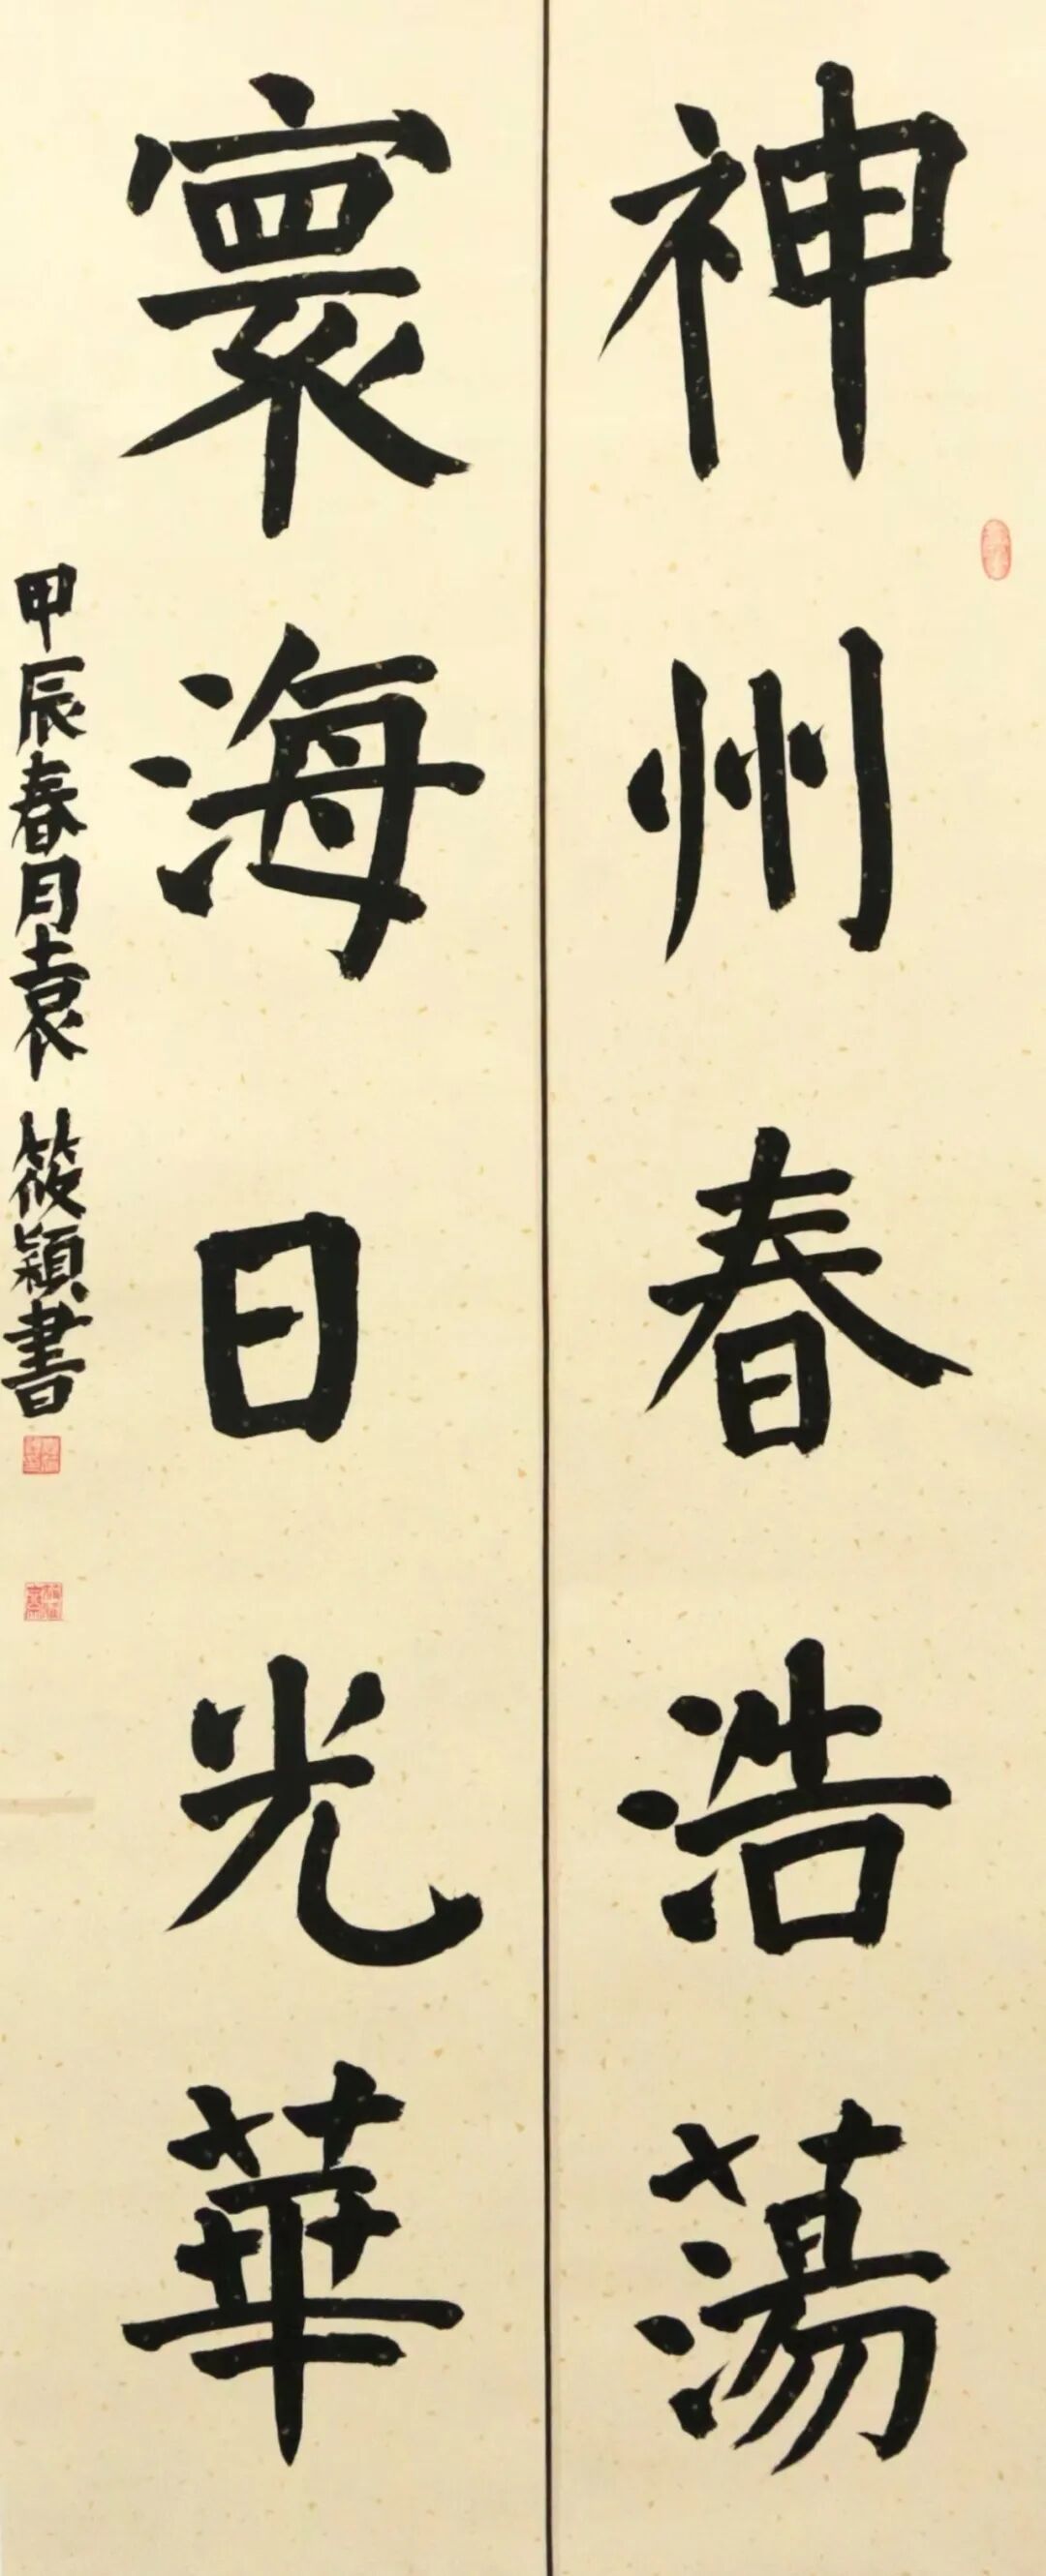 神州春浩蕩
寰海日光華
甲辰春月袁筱穎書